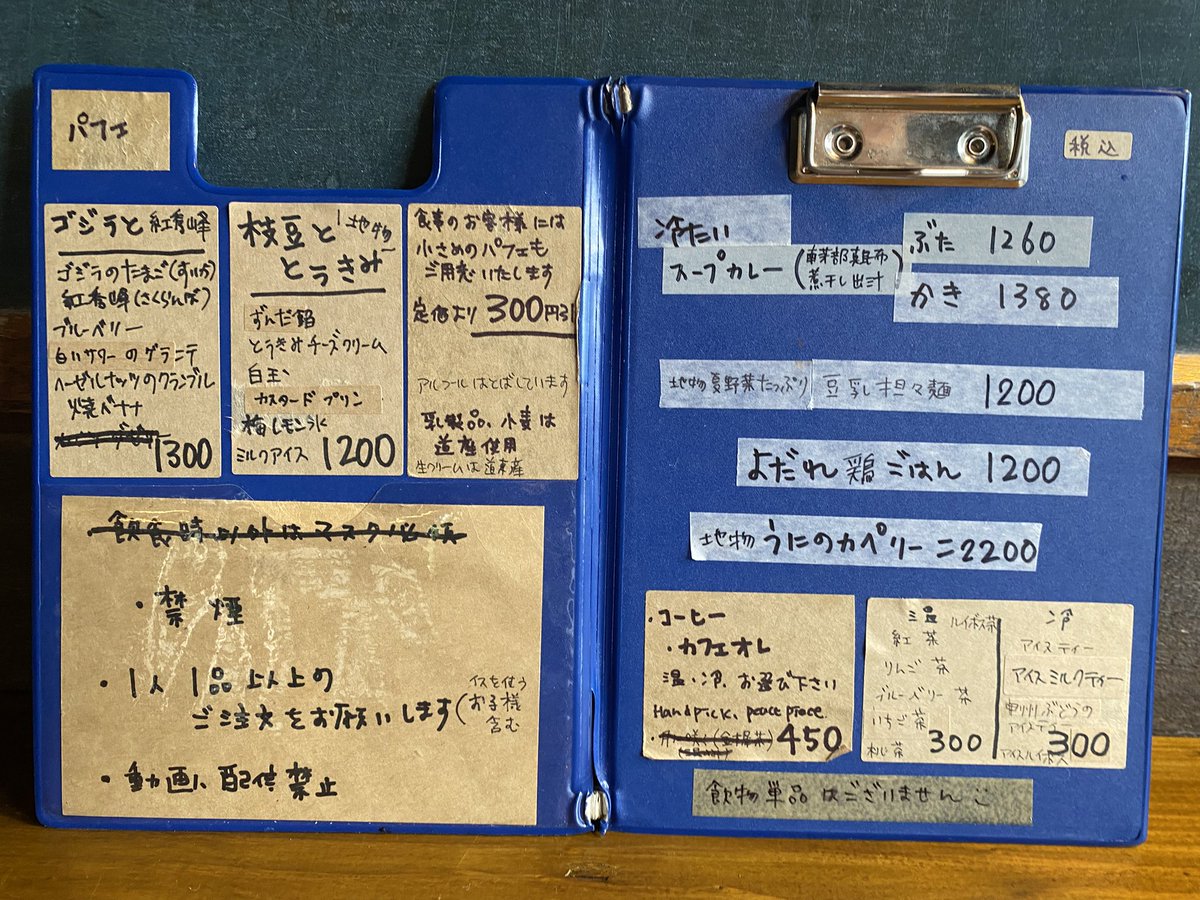 パフェ
ゴジラと紅秀峰
ゴジラのたまご(すいか)
紅秀峰(さくらんぼ)
ブルーベリー
白いサワーのグラニテ
ヘーゼルナッツのクランブル
焼バナナ
1300
枝豆と地物
とうきみ
ずんだ餡
とうきみチーズクリーム
白玉
カスタードプリン
梅レモン氷
ミルクアイス 1200
食事のお客様には
小さめのパフェも
ご用意いたします
定価より 300円引
アルコールはとばしています
乳製品、小麦は
道産使用
生クリームは道東産
飲食時以外はマスク必須
・禁煙
・1人1品以上の
ご注文をお願いします(イスを使うお子様含む
・動画、配信禁止
税込
冷たい
スープカレー(南茅部真昆布
煮干し出汁)
ぶた 1260
かき 1380
地物夏野菜たっぷり 豆乳担々麺 1200
よだれ鶏ごはん 1200
地物うにのカペリーニ2200
・コーヒー
・カフェオレ
温・冷、お選び下さい
Handpick、peace piece.
450
温
ルイボス茶
紅茶
りんご茶
ブルーベリー茶
いちご茶
300
冷
アイスティー
アイスミルクティー
ぶどうの
アイスティー
アイスルイボス
300
飲物単品はございません